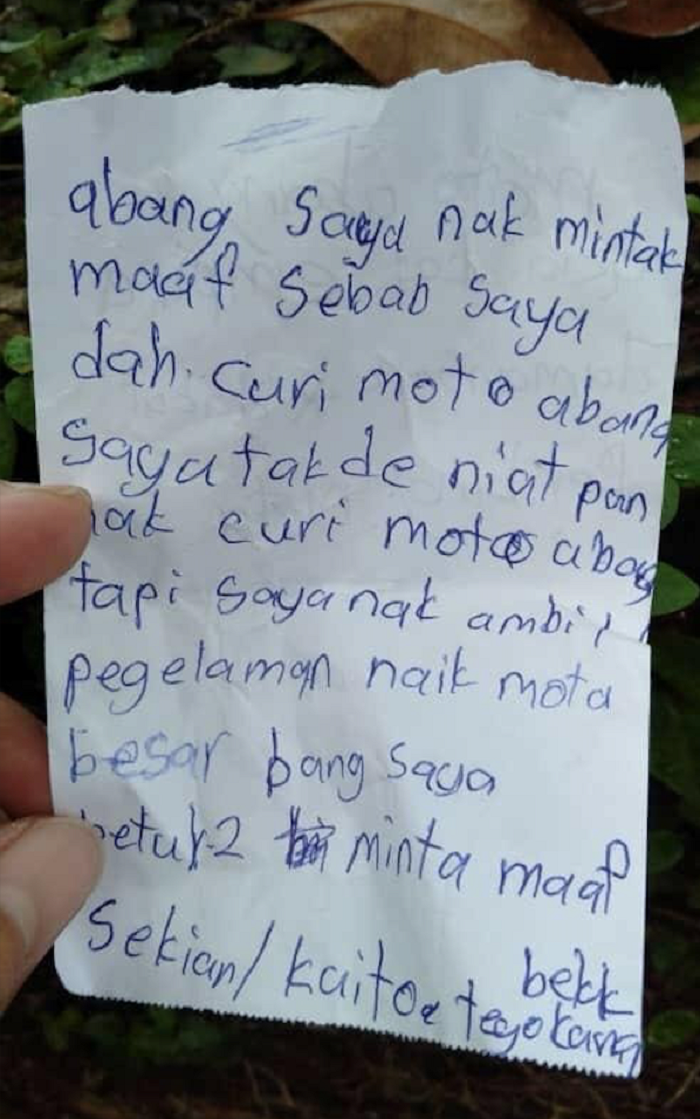 abang saya nak mintak
maaf sebab saya
dah. curi moto abang
saya takde niat pan
nak curi moto abag
tapi saya nak ambil
pegelaman naik mota
besar bang saya
betul2 minta maaf
Sekian/ kaito
bekk